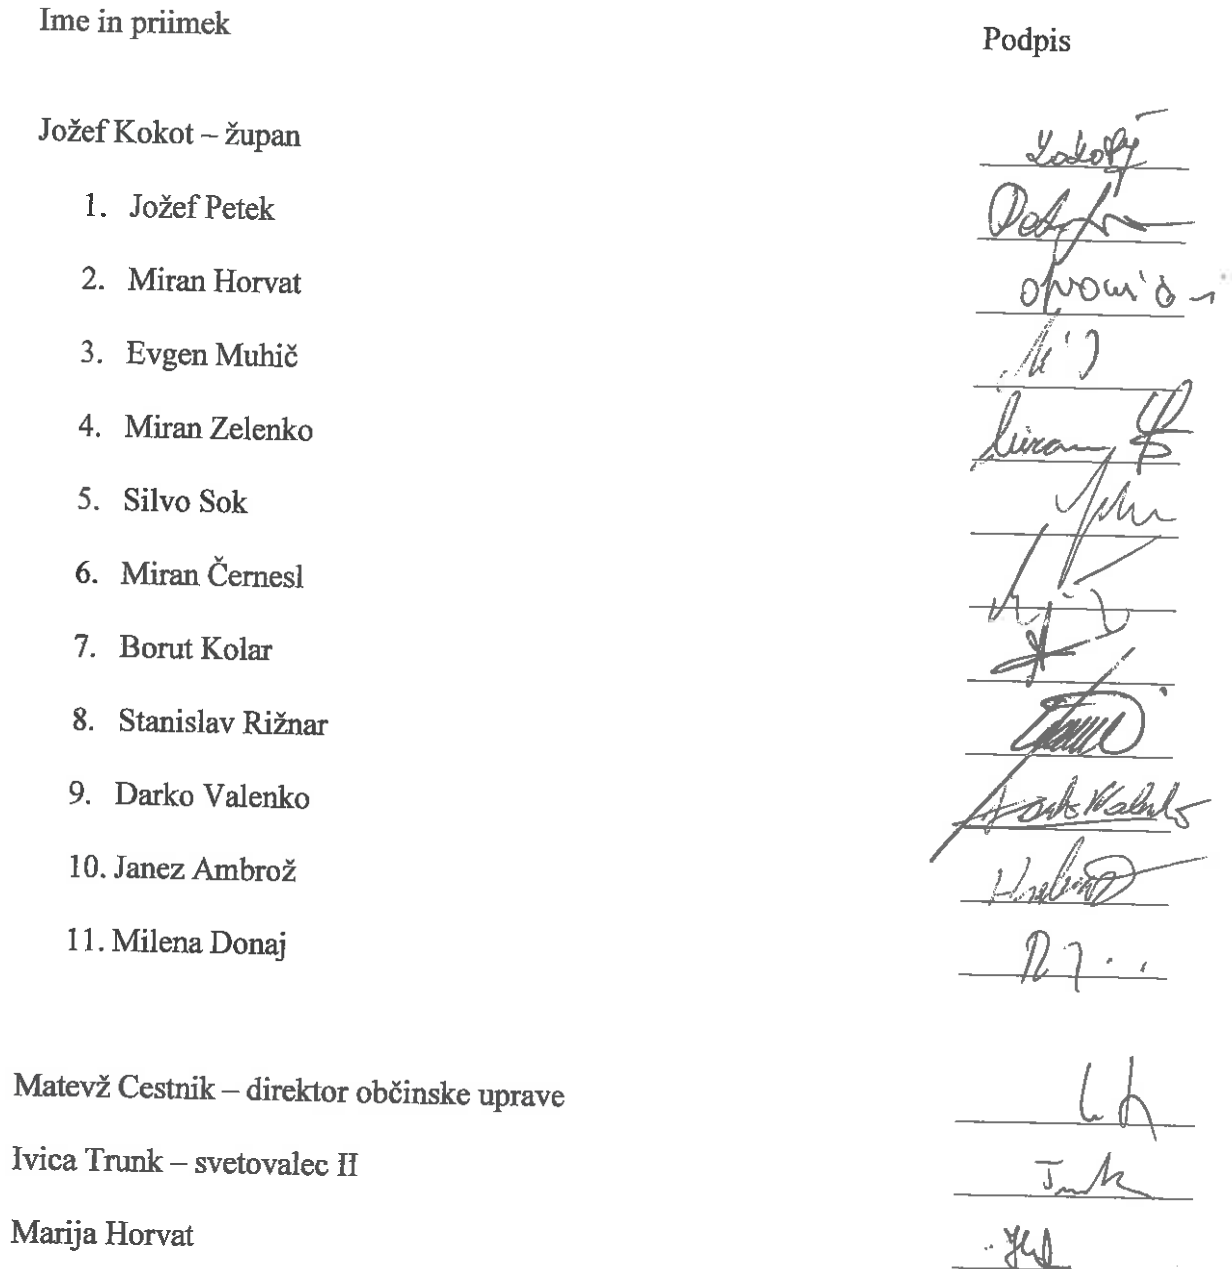 Ime in priimek Podpis
Jožef Kokot – župan
1. Jožef Petek
2. Miran Horvat opravičil
3. Evgen Muhič
4. Miran Zelenko Miran
5. Silvo Sok
6. Miran Černesl
7. Borut Kolar
8. Stanislav Rižnar
9. Darko Valenko Darko Valenko
10. Janez Ambrož
11. Milena Donaj
Matevž Cestnik – direktor občinske uprave
Ivica Trunk – svetovalec II Trunk
Marija Horvat